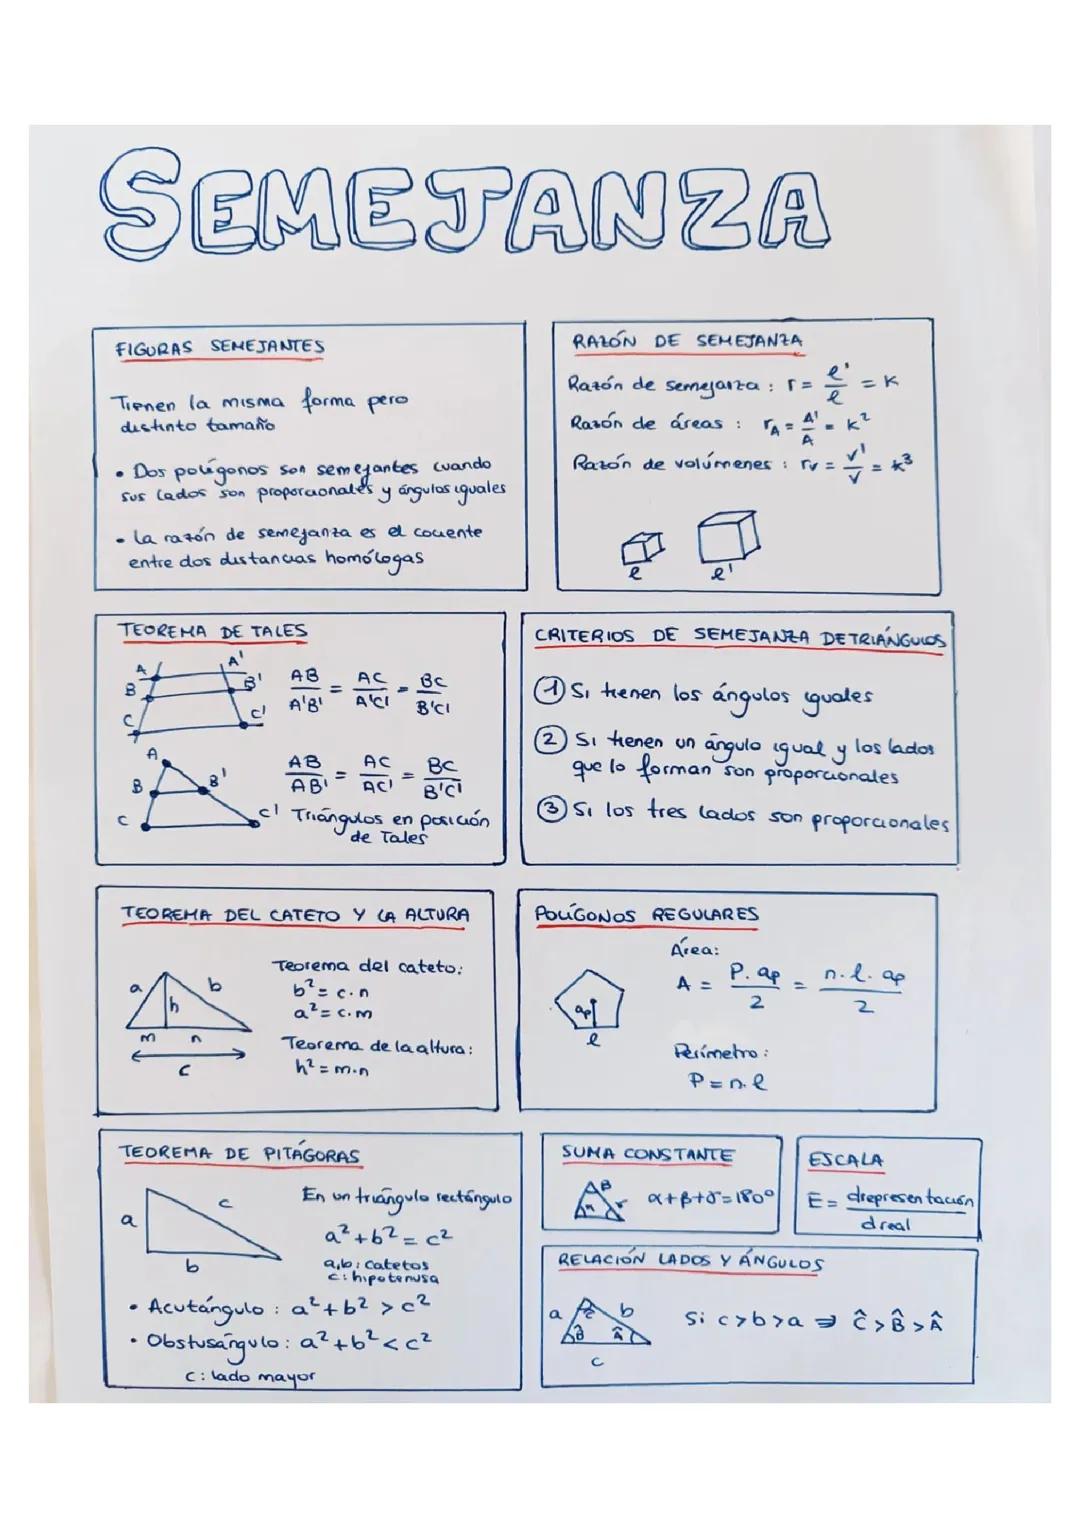 SEMEJANZA
FIGURAS SEMEJANTES
Tienen la misma forma pero
distinto tamaño
• Dos polígonos son semejantes cuando
sus lados son proporcionales y ángulos iguales
• La razón de semejanza es el cociente
entre dos distancias homólogas
RAZÓN DE SEMEJANZA
Razón de semejanza : r = l'/l = K
Razón de áreas : rA = A'/A = K²
Razón de volúmenes : rv = V'/V = K³
l l'
TEOREMA DE TALES
A A'
B B'
C C'
AB/A'B' = AC/A'C' = BC/B'C'
A
B B'
C C'
AB/AB' = AC/AC' = BC/B'C'
Triángulos en posición
de Tales
CRITERIOS DE SEMEJANZA DE TRIÁNGULOS
1 Si tienen los ángulos iguales
2 Si tienen un ángulo igual y los lados
que lo forman son proporcionales
3 Si los tres lados son proporcionales
TEOREMA DEL CATETO Y LA ALTURA
a b
h
m n
c
Teorema del cateto:
b² = c.n
a² = c.m
Teorema de la altura:
h² = m.n
POLÍGONOS REGULARES
ap
l
Área:
A = P.ap/2 = n.l.ap/2
Perímetro:
P = n.l
TEOREMA DE PITÁGORAS
a c
b
En un triángulo rectángulo
a² + b² = c²
a,b: catetos
c: hipotenusa
• Acutángulo : a² + b² > c²
• Obstusángulo : a² + b² < c²
c: lado mayor
SUMA CONSTANTE
β
α+β+γ=180º
ESCALA
E = drepresentación/dreal
RELACIÓN LADOS Y ÁNGULOS
a Ĉ b
B̂ Â
c
Si c>b>a ⇒ Ĉ>B̂>Â